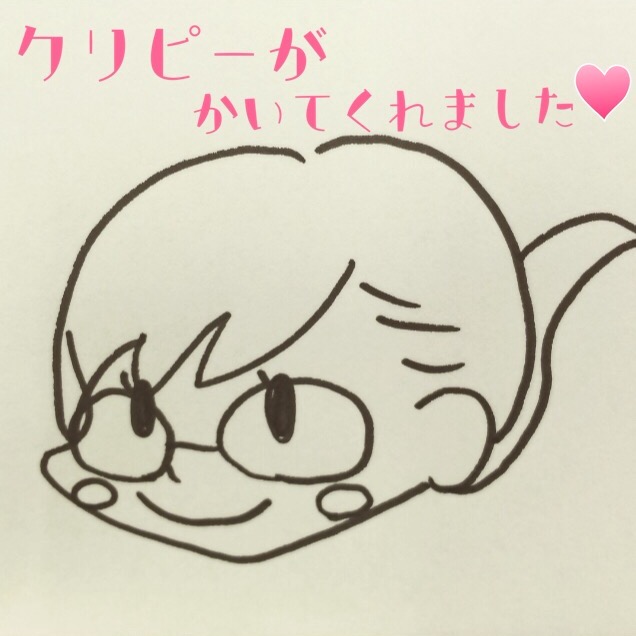 クリピーが
かいてくれました